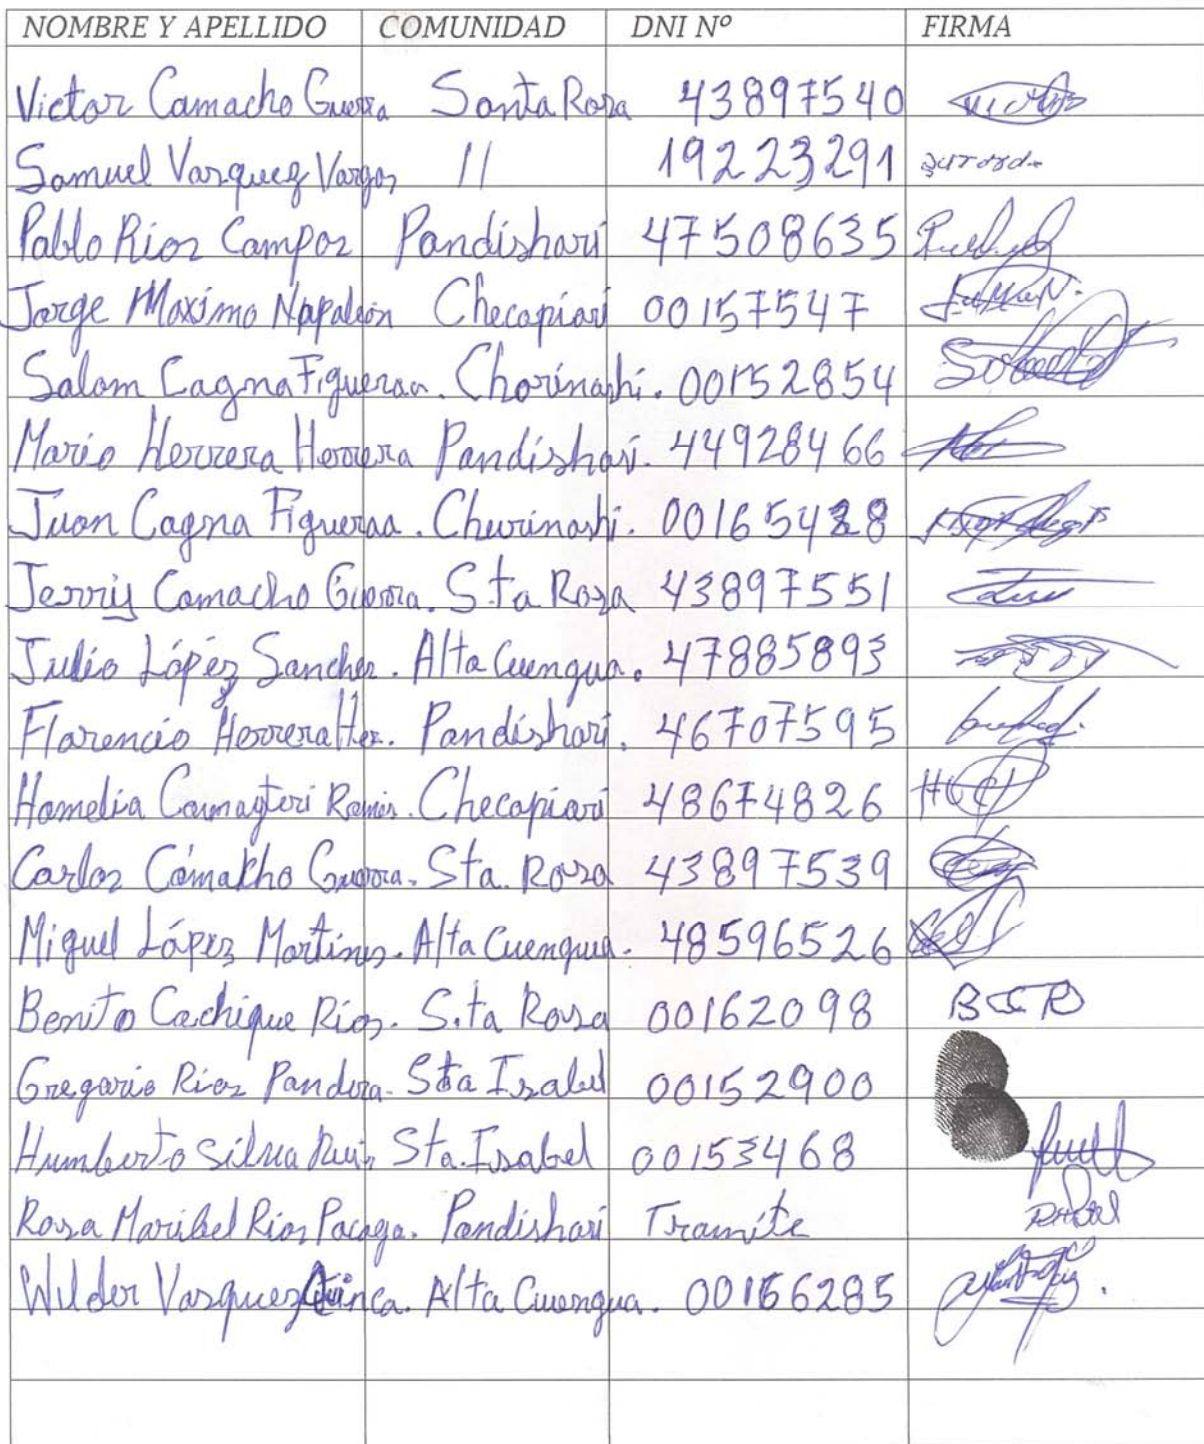 NOMBRE Y APELLIDO COMUNIDAD DNI Nº FIRMA
Victor Camacho Guerra Santa Rosa 43897540
Samuel Vasquez Vargas 11 19223291
Pablo Rios Campos Pandishari 47508635
Jorge Maximo Napaleón Checapiari 00157547
Salom Cagna Figueraa. Chorinashi. 00152854
Mario Herrera Herrera Pandishari. 44928466
Juan Cagna Figueraa. Churinashi. 00165428
Jerris Camacho Guerra. Sta Rosa 43897551
Julio López Sanches. Alta Cuengua. 47885893
Florencio Herrera Her. Pandishari. 46707595
Homelia Camayteri Ramis. Checapiari 48674826
Carlos Cámakho Guerra. Sta. Rosa 43897539
Miguel López Martines. Alta Cuengua. 48596526
Benito Cachique Rios. S.ta Rosa 00162098 BCR
Gregorio Rios Pandura. Sta Isabel 00152900
Humberto Silva Ruis Sta. Isabel 00153468
Rosa Maribel Rios Pacaya. Pandishari Tramite
Wilder Vasquez Cuinca. Alta Cuengua. 00166285